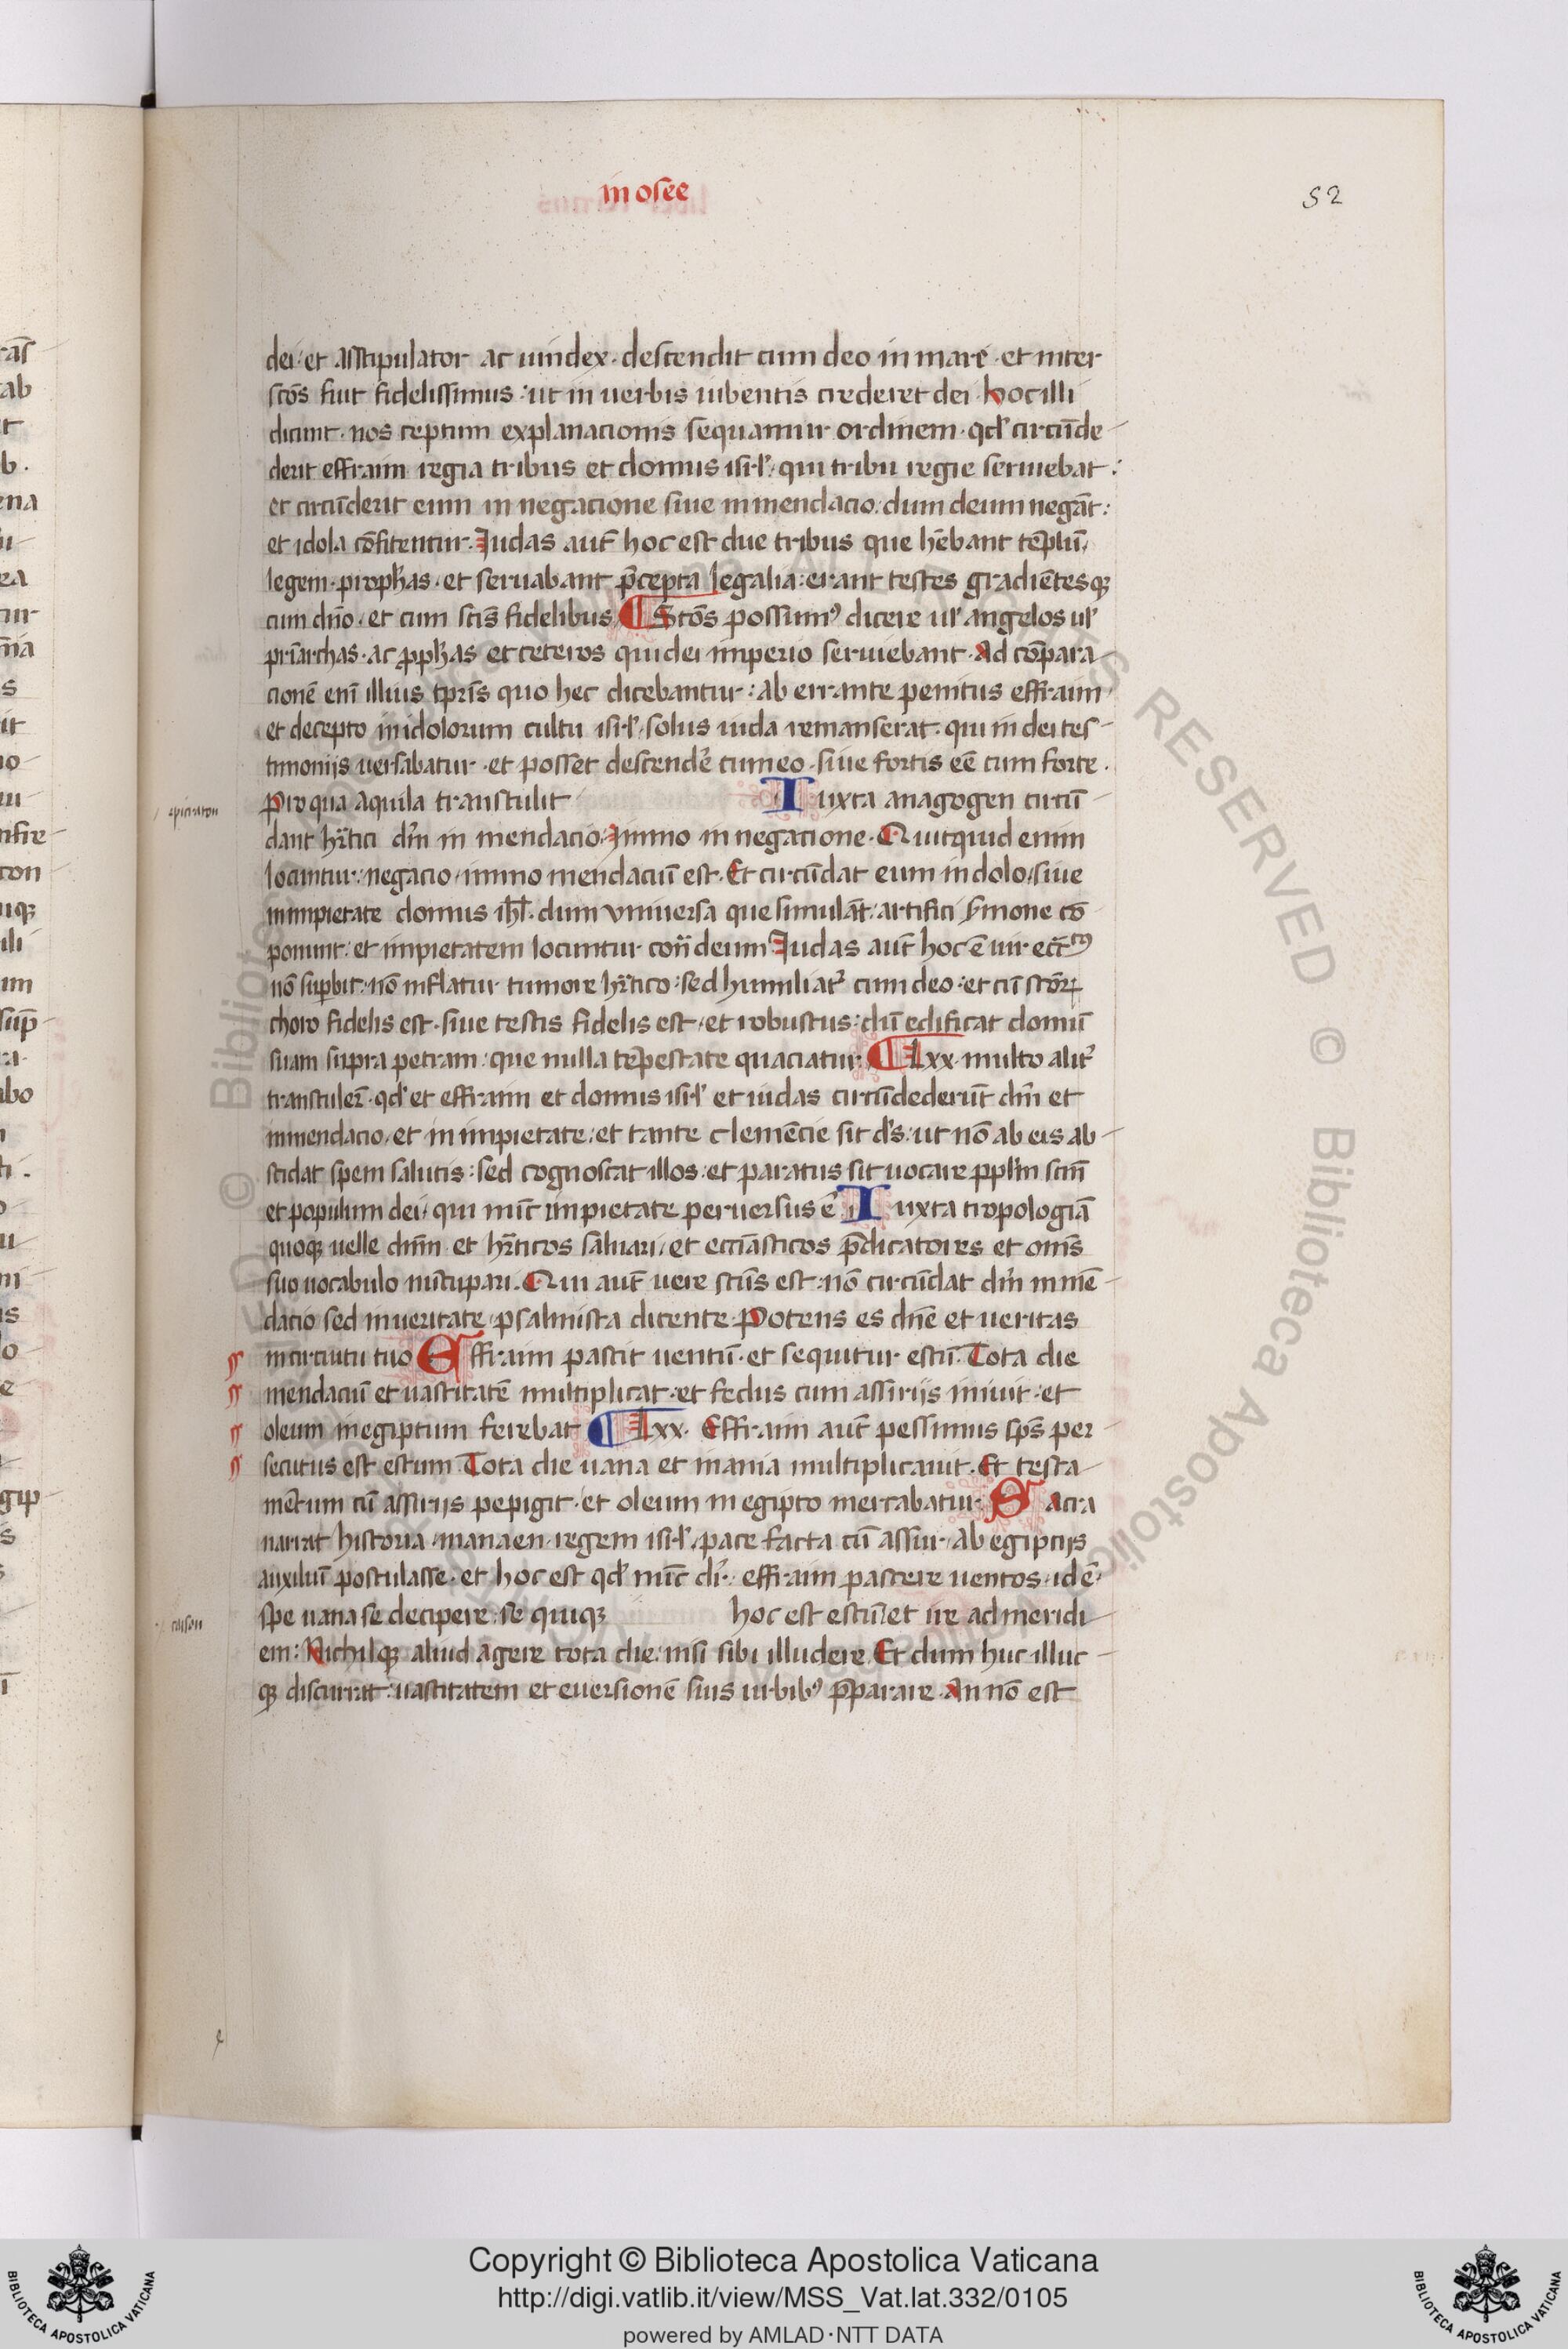 in osee
52
dei · et astipulator ac uindex · descendit cum deo in mare · et inter
scōs fuit fidelissimus : ut in uerbis iubentis crederet dei · hoc illi
dicunt · nos ceptum explanacionis sequamur ordinem · qđ circūde
derit effraim regia tribus et domus isrl' · qui tribu regie seruiebat :
et circūderit eum in negacione siue in mendacio : dum deum negāt :
et idola cōfitentur · Iudas aut̄ hoc est due tribus que hēbant tēplū /
legem · prophas · et seruabant p̄cepta legalia : erant testes gradiētesqꝫ
cum dn̄o · et cum scīs fidelibus / Stōs possumꝰ dicere ul' angelos ul'
pr̄iarchas · ac ꝓphas et ceteros qui dei imperio seruiebant · Ad cōpara
cionē eni illius tpr̄is quo hec dicebantur : ab errante penitus effraim
et decepto in idolorum cultu isrl' / solus iuda remanserat · qui in dei tes
timoniis uersabatur · et posset descendē cum eo · siue fortis eē cum forte .
Pro qua aquila transtulit Iuxta anagogen circū
epicraton
dant hr̄tici dm̄ in mendacio / immo in negacione · Quitquid enim
locuntur : negacio / immo mendaciū est · Et circūdat eum in dolo / siue
in impietate domus ihl · dum vniuersa que simulāt / artifici s̄mone cō
ponunt : et impietatem locuntur con̄ deum Iudas aut̄ hoc ē uir ecc̄tꝰ
nō supbit : nō inflatur tumore hr̄tico : sed humiliat᷑ cum deo : et cū scōꝝ
choro fidelis est · siue testis fidelis est / et robustus : dū edificat domū
suam supra petram : que nulla tēpestate quaciatur · Lxx · multo alit᷑
transtuler̄ · qđ et effraim et domus isrl' et iudas circūdederūt dm̄ et
in mendacio / et in impietate / et tante clemēcie sit ds̄ : ut nō ab eis ab
scidat spem salutis : sed cognoscat illos : et paratus sit uocare ppl'm scm̄
et populum dei / qui nūc impietate peruersus ē · Iuxta tropologiā
quoqꝫ uelle dn̄m et hr̄ticos saluari / et ecciāsticos p̄dicatores et omīs
suo uocabulo nūcupari · Qui aut̄ uere scūs est : nō circūdat dm̄ in mē
dacio sed in ueritate / psalmista dicente · Potens es dn̄e et ueritas
in circuitu tuo Effraim pascit uentū · et sequitur estū · Tota die
mendaciū et uastitatē multiplicat · et fedus cum assiriis iniuit · et
oleum in egiptum ferebat Lxx · Effraim aut̄ pessimus sp̄s per
secutus est estum · Tota die uana et inania multiplicauit · Et testa
mētum cū assiriis pepigit · et oleum in egipto mercabatur · Sacra
narrat historia / manaen regem isrl' / pace facta cū assur / ab egiptiis
auxiliū postulasse · et hoc est qđ nūc dr̄ · effraim pascere uentos · id ē /
spe uana se decipere : se quiqꝫ hoc est estū / et ire ad meridi
causon
em : Nichilqꝫ aliud agere tota die / nisi sibi illudere / Et dum huc illuc
qꝫ discurrit : uastitatem et euersionē suis urbibꝰ p̄parare · An nō est
© Biblioteca Apostolica Vaticana ALL RIGHTS RESERVED
Copyright © Biblioteca Apostolica Vaticana
http://digi.vatlib.it/view/MSS_Vat.lat.332/0105
powered by AMLAD·NTT DATA
BIBLIOTECA APOSTOLICA VATICANA
BIBLIOTECA APOSTOLICA VATICANA